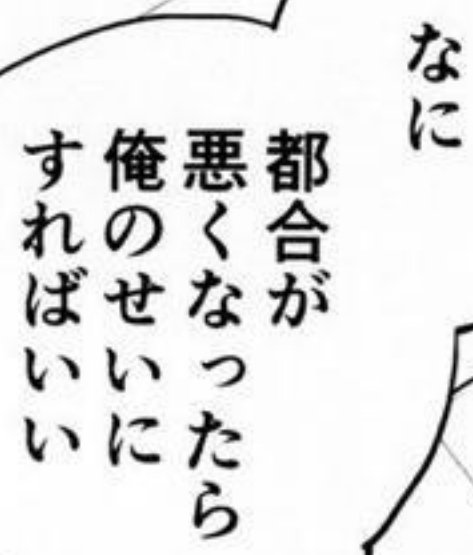 なに
都合が
悪くなったら
俺のせいに
すればいい